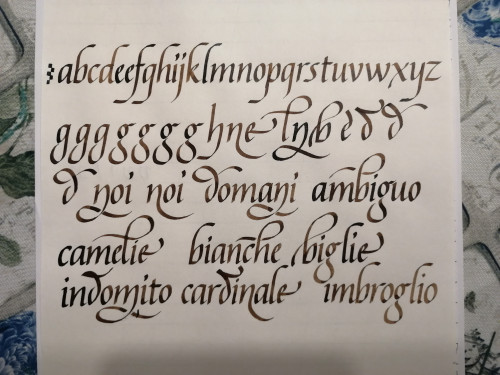 abcdeefghijklmnopqrstuvwxyz
ggggggg hne lnb è d d
d noi noi domani ambiguo
camelie bianche biglie
indomito cardinale imbroglio